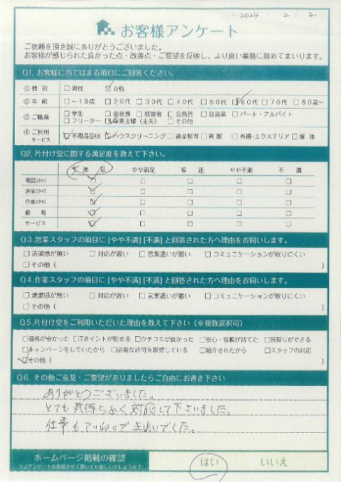 2024 2 2
お客様アンケート
ご依頼を頂き誠にありがとうございました。
お客様が感じられた良かった点・改善点・ご要望を反映し、より良い業務に努めてまいります。
Q1. お客様に当てはまる項目にご回答ください。
① 性 別 □男性 ☑女性
② 年 齢 □~19歳 □20代 □30代 □40代 □50代 ☑60代 □70代 □80歳~
③ ご職業 □学生 □会社員 □経営者 □公務員 □自営業 □パート・アルバイト
□フリーター □専業主婦(主夫) □その他
④ ご利用サービス ☑不用品回収 ☑ハウスクリーニング □遺品整理 □買取 □外構・エクステリア □解体
Q2. 片付け堂に関する満足度を教えて下さい。
大満足 やや満足 普通 やや不満 不満
電話スタッフ
営業スタッフ
作業スタッフ
価格
サービス
Q3. 営業スタッフの項目に [やや不満] [不満] と回答された方へ理由をお伺いします。
□清潔感が無い □対応が遅い □言葉遣いが悪い □コミュニケーションが取りにくい
□その他 (
Q4. 作業スタッフの項目に [やや不満] [不満] と回答された方へ理由をお伺いします。
□清潔感が無い □対応が遅い □言葉遣いが悪い □コミュニケーションが取りにくい
□その他 (
Q5. 片付け堂をご利用いただいた理由を教えて下さい (※複数選択可)
□価格が安かった □Tポイントが貯まる □クチコミが良かった □安心・信頼が持てた □買取りができる
□キャンペーンをしていたから □必要な許可を取得している □紹介されたから □スタッフの対応
☑その他 (
Q6. その他ご意見・ご要望がありましたらご自由にお書き下さい
ありがとうございました。
とても気持ちよく対応して下さいました。
仕事もていねいで
ホームページ掲載の確認
はい いいえ